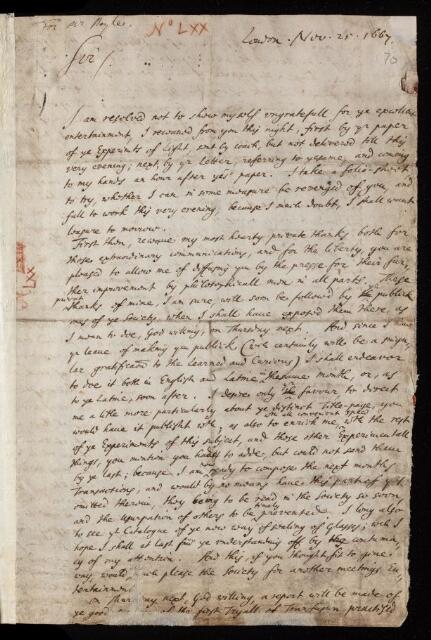 For Mr Boyle.
No LXX
London. Nov. 25. 1667.
70
Sir,
I am resolved not to show myself ungratefull for ye excellent
entertainment, I received from you this night, first by yr paper
of ye Experiments of Light, sent by coach, but not delivered till this
very evening; next, by yr Letter, referring to ye same, and coming
to my hands an hour after yt paper. I take a folio-sheet
to try, whether I can in some measure be revenged of you, and
fall to work this very evening, because I much doubt, I shall want
leasure to morrow.
First then, receive my most hearty private thanks both for
those extraordinary communications, and for the liberty, you are
pleased to allow me of diffusing ym by the presse for their fur-
ther improvement by philosophicall men in all parts. These
private
thanks of mine, I am sure, will soon be followed by ye publick
ones of ye Society, when I shall have exposed them there, as
I mean to doe, God willing, on Thursday next. And since I have
yr leave of making ym publick (wch certainly will be a singu-
lar gratification to the Learned and Curious) I shall endeavor
to doe it both in English and Latin, the same month, or, as
to ye Latine, soon after. I desire only ye favour to direct
me a litle more particularly about ye distinct Title-page, you
would have it publisht wth; as also to enrich me, wth the rest
in all convenient speed
of ye Experiments of this subject, and those other Experimentall
things, you mention you to adde, but could not send them
by ye last; because I am ready to compose the next months
Transactions, and would by no means have this part of yt
omitted therein, they being to be read in the Society so soon
and the usurpation of others to be prevented. I long also
timely
to see ye Catalogue of ye new way of of Glasses, wch I
hope I shall at last ye understanding off by the continuan-
cy of my attention. And this, if you thought fit to give
way, would please the Society for another meetings En-
tertainment.
In my next, God willing, a report will be made of
ye good of the first Tryall of Transfusion practised
LXX